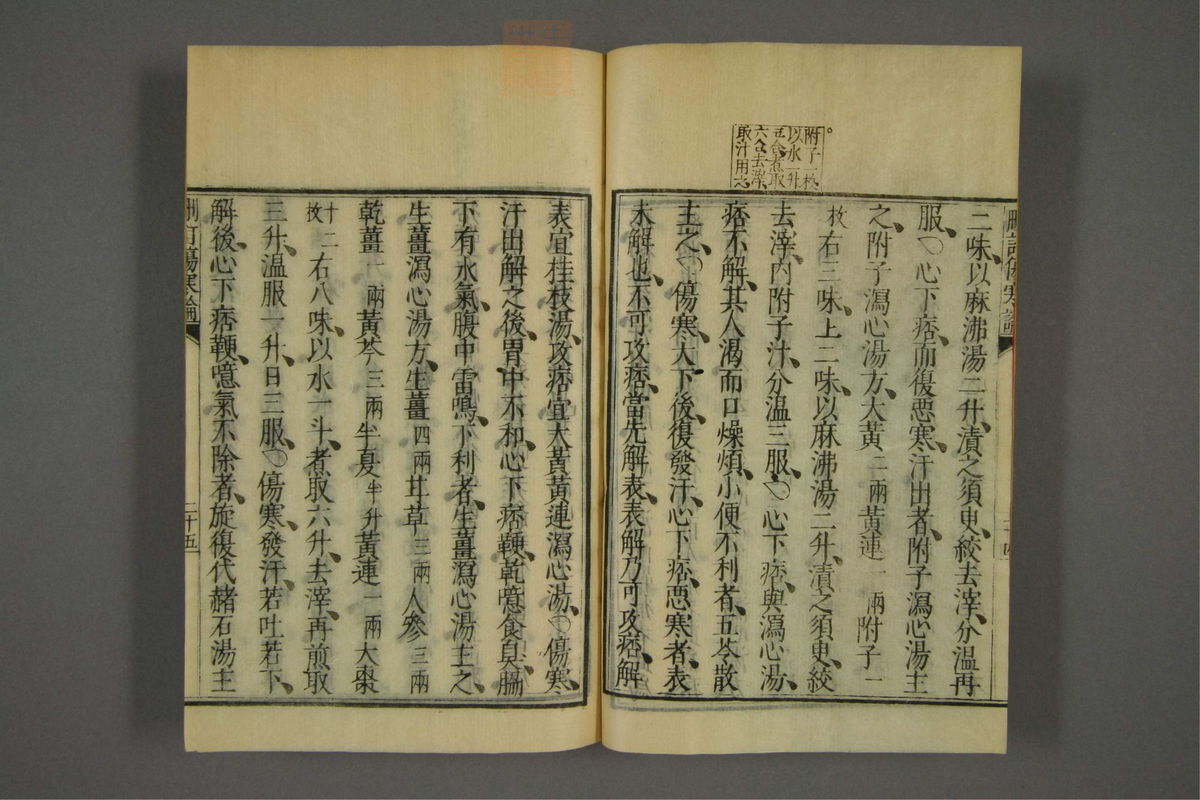 附子一枚
以水一升
五合煮取
六合去滓
取汁用之
二味以麻沸湯二升漬之須臾絞去滓分溫再
服○心下痞而復惡寒汗出者附子瀉心湯主
之附子瀉心湯方大黃二兩黃連一兩附子一
枚右三味上二味以麻沸湯二升漬之須臾絞
去滓內附子汁分溫三服○心下痞與瀉心湯
痞不解其人渴而口燥煩小便不利者五苓散
主之○傷寒大下後復發汗心下痞惡寒者表
未解也不可攻痞當先解表表解乃可攻痞解
表宜桂枝湯攻痞宜大黃黃連瀉心湯○傷寒
汗出解之後胃中不和心下痞鞕乾噫食臭脇
下有水氣腹中雷鳴下利者生薑瀉心湯主之
生薑瀉心湯方生薑四兩甘草三兩人參三兩
乾薑一兩黃芩三兩半夏半升黃連一兩大棗
十二枚右八味以水一斗煮取六升去滓再煎取
三升溫服一升日三服○傷寒發汗若吐若下
解後心下痞鞕噫氣不除者旋復代赭石湯主
刪訂傷寒論
二十五